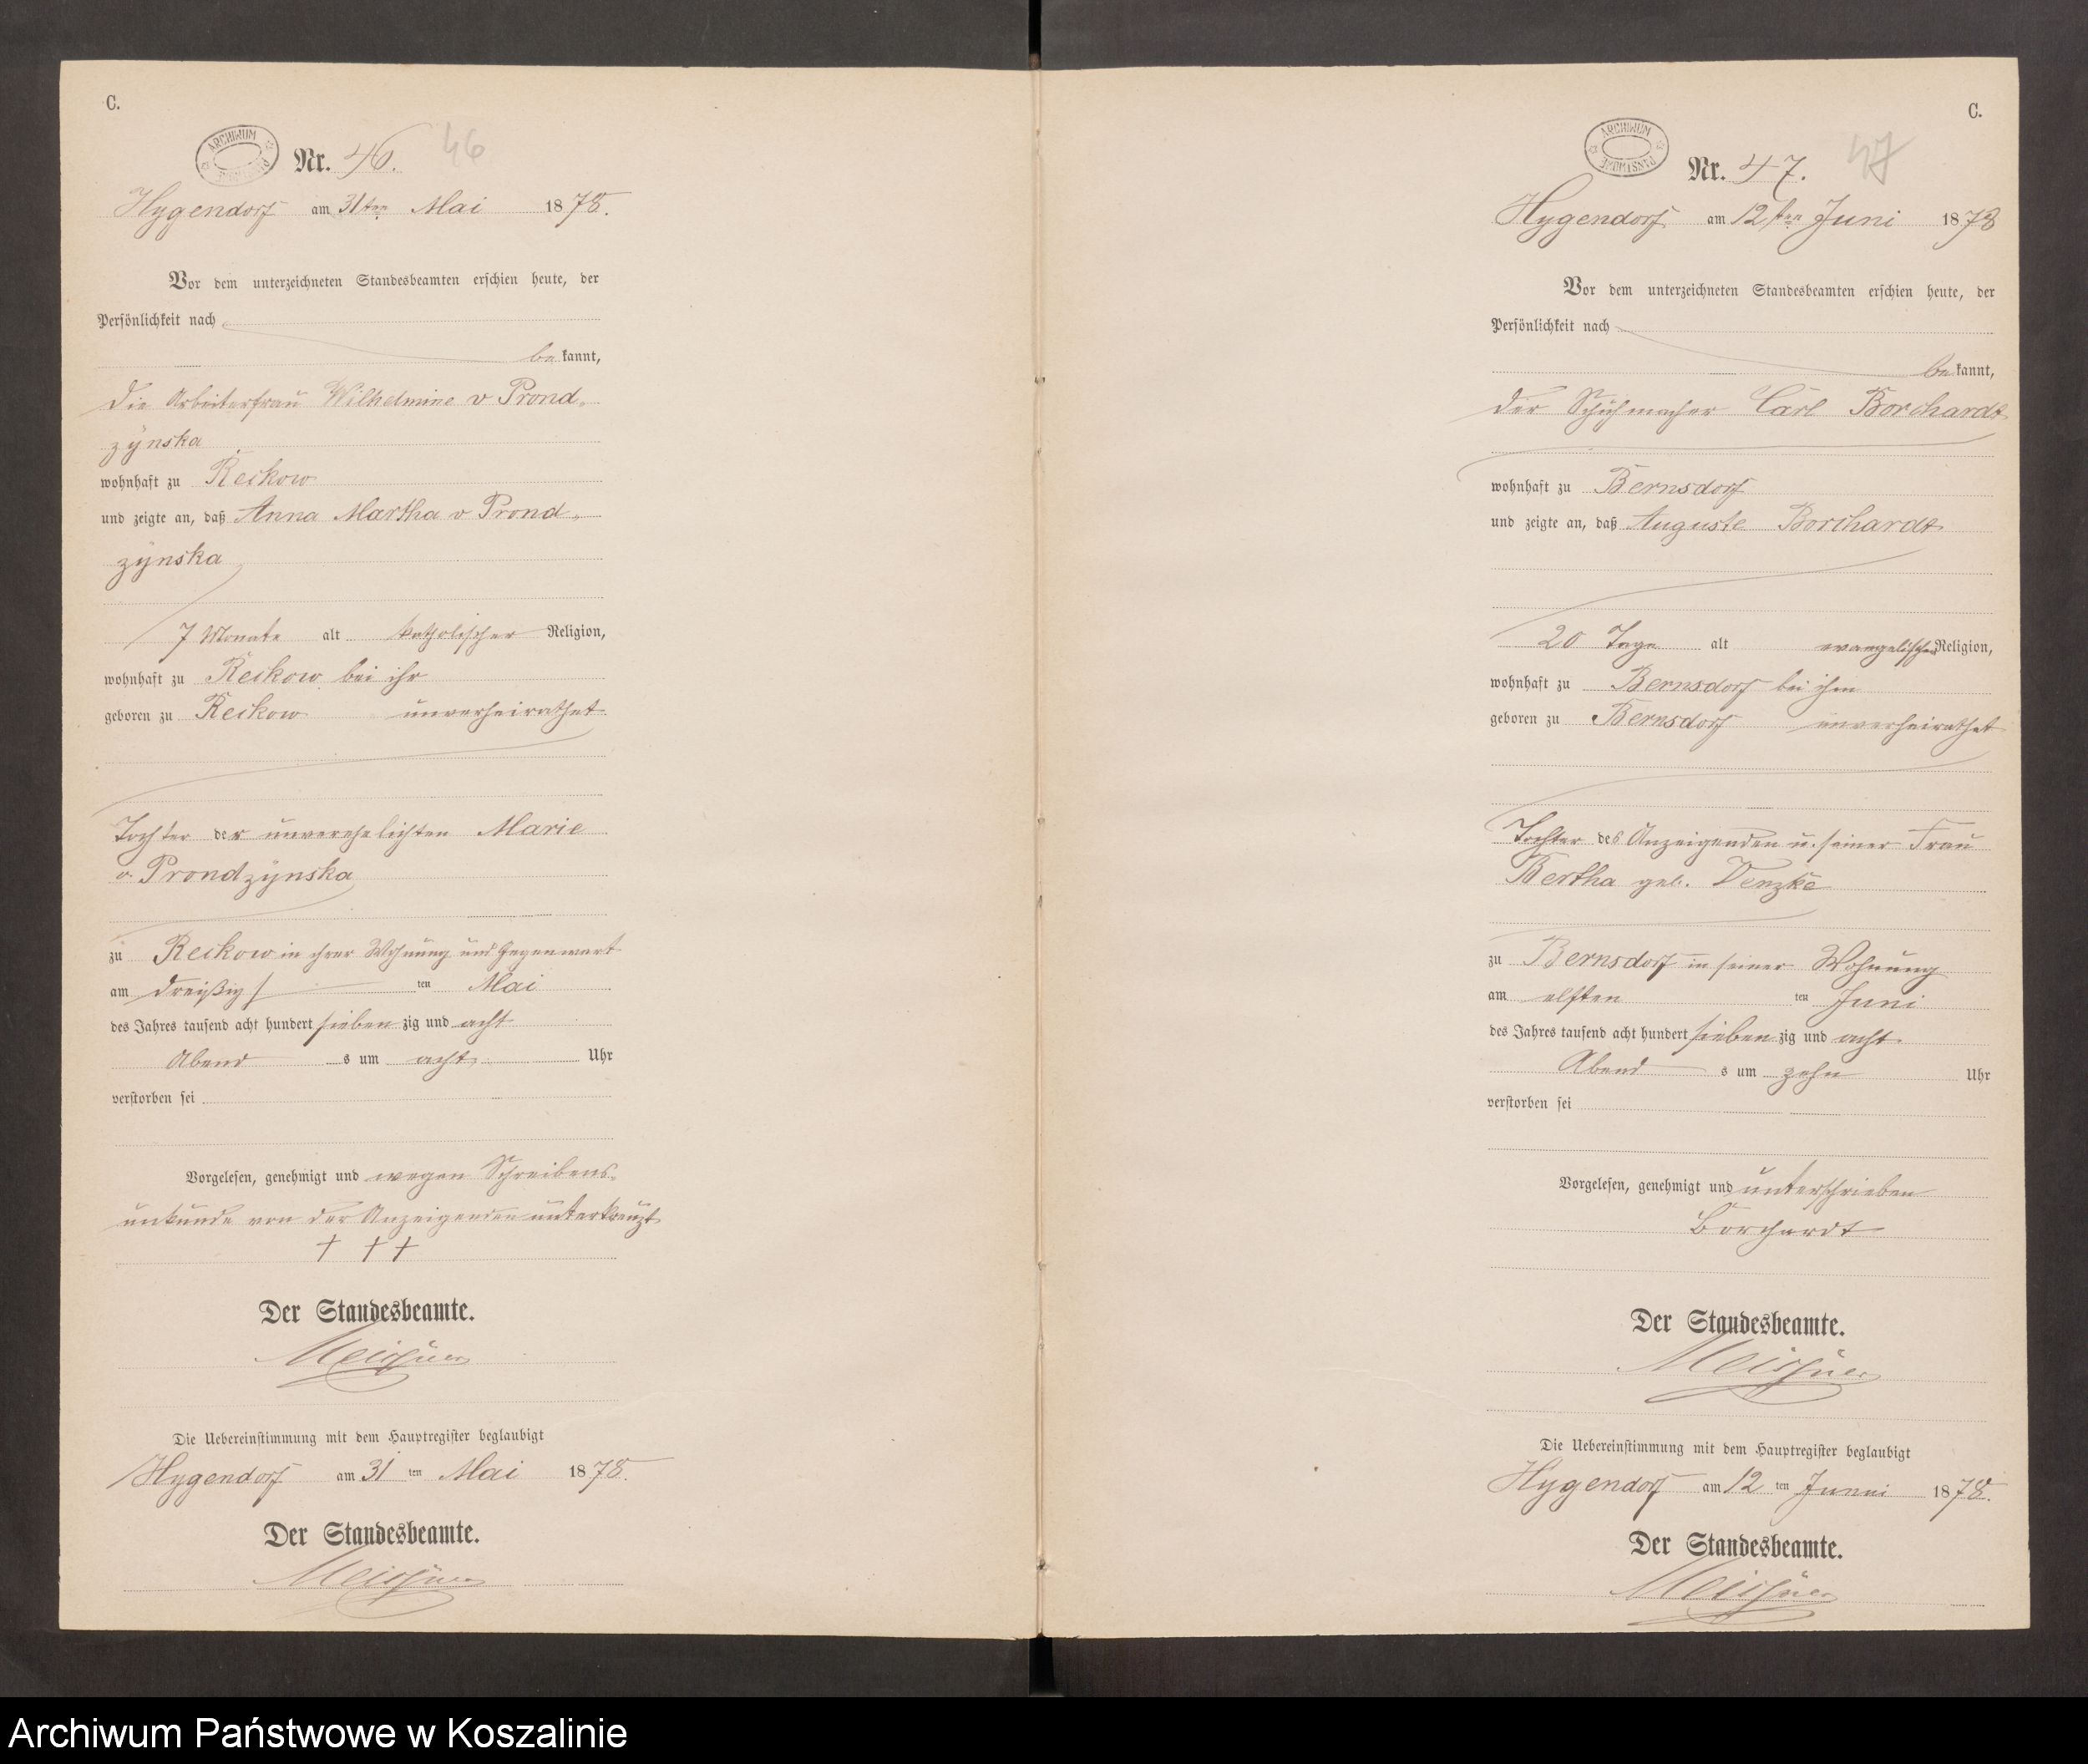 C.
ARCHIWUM PAŃSTWOWE
Nr. 46. 46
Hygendorf am 31ten Mai 1878.
Vor dem unterzeichneten Standesbeamten erschien heute, der
Persönlichkeit nach
bekannt,
die Arbeiterfrau Wilhelmine v Prond-
zynska
wohnhaft zu Reckow
und zeigte an, daß Anna Martha v Prond-
zynska
7 Monate alt katholischer Religion,
wohnhaft zu Reckow bei ihr
geboren zu Reckow unverheirathet
Tochter der unverehelichten Marie
v. Prondzynska
zu Reckow in ihrer Wohnung und Gegenwart
am dreißigs ten Mai
des Jahres tausend acht hundert siebenzig und acht
Abends um acht Uhr
verstorben sei
Vorgelesen, genehmigt und wegen Schreibens-
unkunde von der Anzeigenden unterkreuzt
† † †
Der Standesbeamte.
Meissner
Die Uebereinstimmung mit dem Hauptregister beglaubigt
Hygendorf am 31 ten Mai 1878.
Der Standesbeamte.
Meissner
C.
ARCHIWUM PAŃSTWOWE
Nr. 47. 47
Hygendorf am 12ten Juni 1878
Vor dem unterzeichneten Standesbeamten erschien heute, der
Persönlichkeit nach
bekannt,
der Schuhmacher Carl Borchardt
wohnhaft zu Bernsdorf
und zeigte an, daß Auguste Borchardt
20 Tage alt evangelischer Religion,
wohnhaft zu Bernsdorf bei ihm
geboren zu Bernsdorf unverheirathet
Tochter des Anzeigenden u. seiner Frau
Bertha geb. Venzke
zu Bernsdorf in seiner Wohnung
am elften ten Juni
des Jahres tausend acht hundert siebenzig und acht
Abends um zehn Uhr
verstorben sei
Vorgelesen, genehmigt und unterschrieben
Borchardt
Der Standesbeamte.
Meissner
Die Uebereinstimmung mit dem Hauptregister beglaubigt
Hygendorf am 12 ten Junni 1878.
Der Standesbeamte.
Meissner
Archiwum Państwowe w Koszalinie